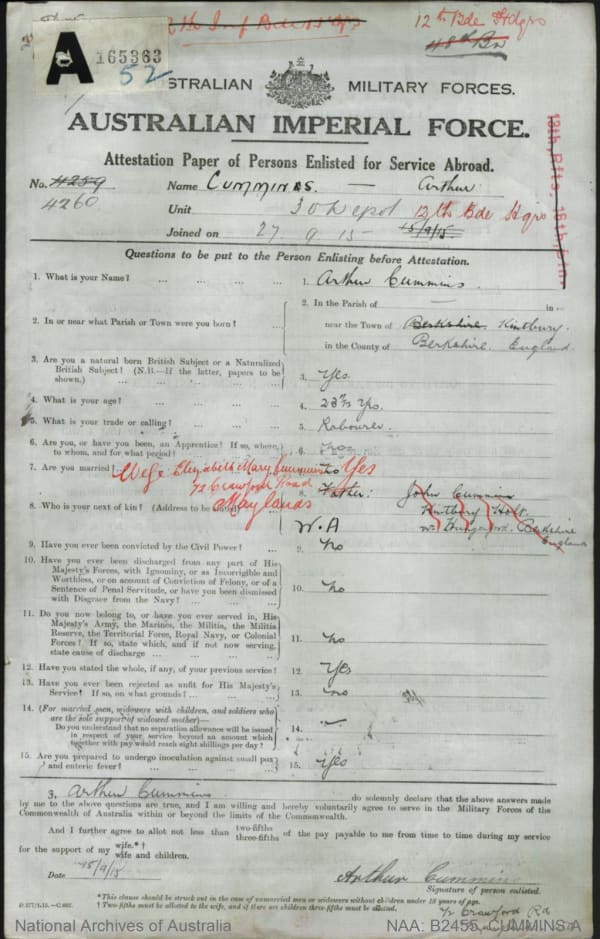 12th Bde Hdqrs
48th Bn
A 165363
52
AUSTRALIAN MILITARY FORCES.
AUSTRALIAN IMPERIAL FORCE.
Attestation Paper of Persons Enlisted for Service Abroad.
No. 4259 Name Cummins. — Arthur
4260
Unit 30 Depot 12th Bde Hqrs
Joined on 27 9 15 15/9/15.
Questions to be put to the Person Enlisting before Attestation.
1. What is your Name? ... ... ... ... 1. Arthur Cummins.
2. In or near what Parish or Town were you born? ... 2. In the Parish of — in
near the Town of Berkshire. Kintbury.
in the County of Berkshire. England.
3. Are you a natural born British Subject or a Naturalized
British Subject? (N.B.—If the latter, papers to be
shown.) ... ... ... ... ... 3. Yes.
4. What is your age? ... ... ... ... 4. 23 Yrs.
5. What is your trade or calling? ... ... ... 5. Labourer.
6. Are you, or have you been, an Apprentice? If so, where,
to whom, and for what period? ... ... 6. no
7. Are you married? Wife Elizabeth Mary Cummins no Yes
72 Crawford Road
8. Who is your next of kin? (Address to be stated) Maylands 8. Father: John Cummins
W.A Kintbury Holt
nr Hungerford. Berkshire
England
9. Have you ever been convicted by the Civil Power? ... 9. no
10. Have you ever been discharged from any part of His
Majesty's Forces, with Ignominy, or as Incorrigible and
Worthless, or on account of Conviction of Felony, or of a
Sentence of Penal Servitude, or have you been dismissed
with Disgrace from the Navy? ... ... ... 10. no
11. Do you now belong to, or have you ever served in, His
Majesty's Army, the Marines, the Militia, the Militia
Reserve, the Territorial Force, Royal Navy, or Colonial
Forces? If so, state which, and if not now serving,
state cause of discharge ... ... ... ... 11. no
12. Have you stated the whole, if any, of your previous service? 12. Yes
13. Have you ever been rejected as unfit for His Majesty's
Service? If so, on what grounds? ... ... ... 13. no
14. (For married men, widowers with children, and soldiers who
are the sole support of widowed mother)—
Do you understand that no separation allowance will be issued
in respect of your service beyond an amount which
together with pay would reach eight shillings per day? 14. —
15. Are you prepared to undergo inoculation against small pox
and enteric fever? ... ... ... ... 15. Yes
I, Arthur Cummins do solemnly declare that the above answers made
by me to the above questions are true, and I am willing and hereby voluntarily agree to serve in the Military Forces of the
Commonwealth of Australia within or beyond the limits of the Commonwealth.
And I further agree to allot not less than two-fifths three-fifths of the pay payable to me from time to time during my service
for the support of my wife.*† wife and children.
Date 15/9/15 Arthur Cummins
Signature of person enlisted.
*This clause should be struck out in the case of unmarried men or widowers without children under 18 years of age.
† Two-fifths must be allotted to the wife, and if there are children three-fifths must be allotted.
72 Crawford Rd
National Archives of Australia NAA: B2455, CUMMINS A